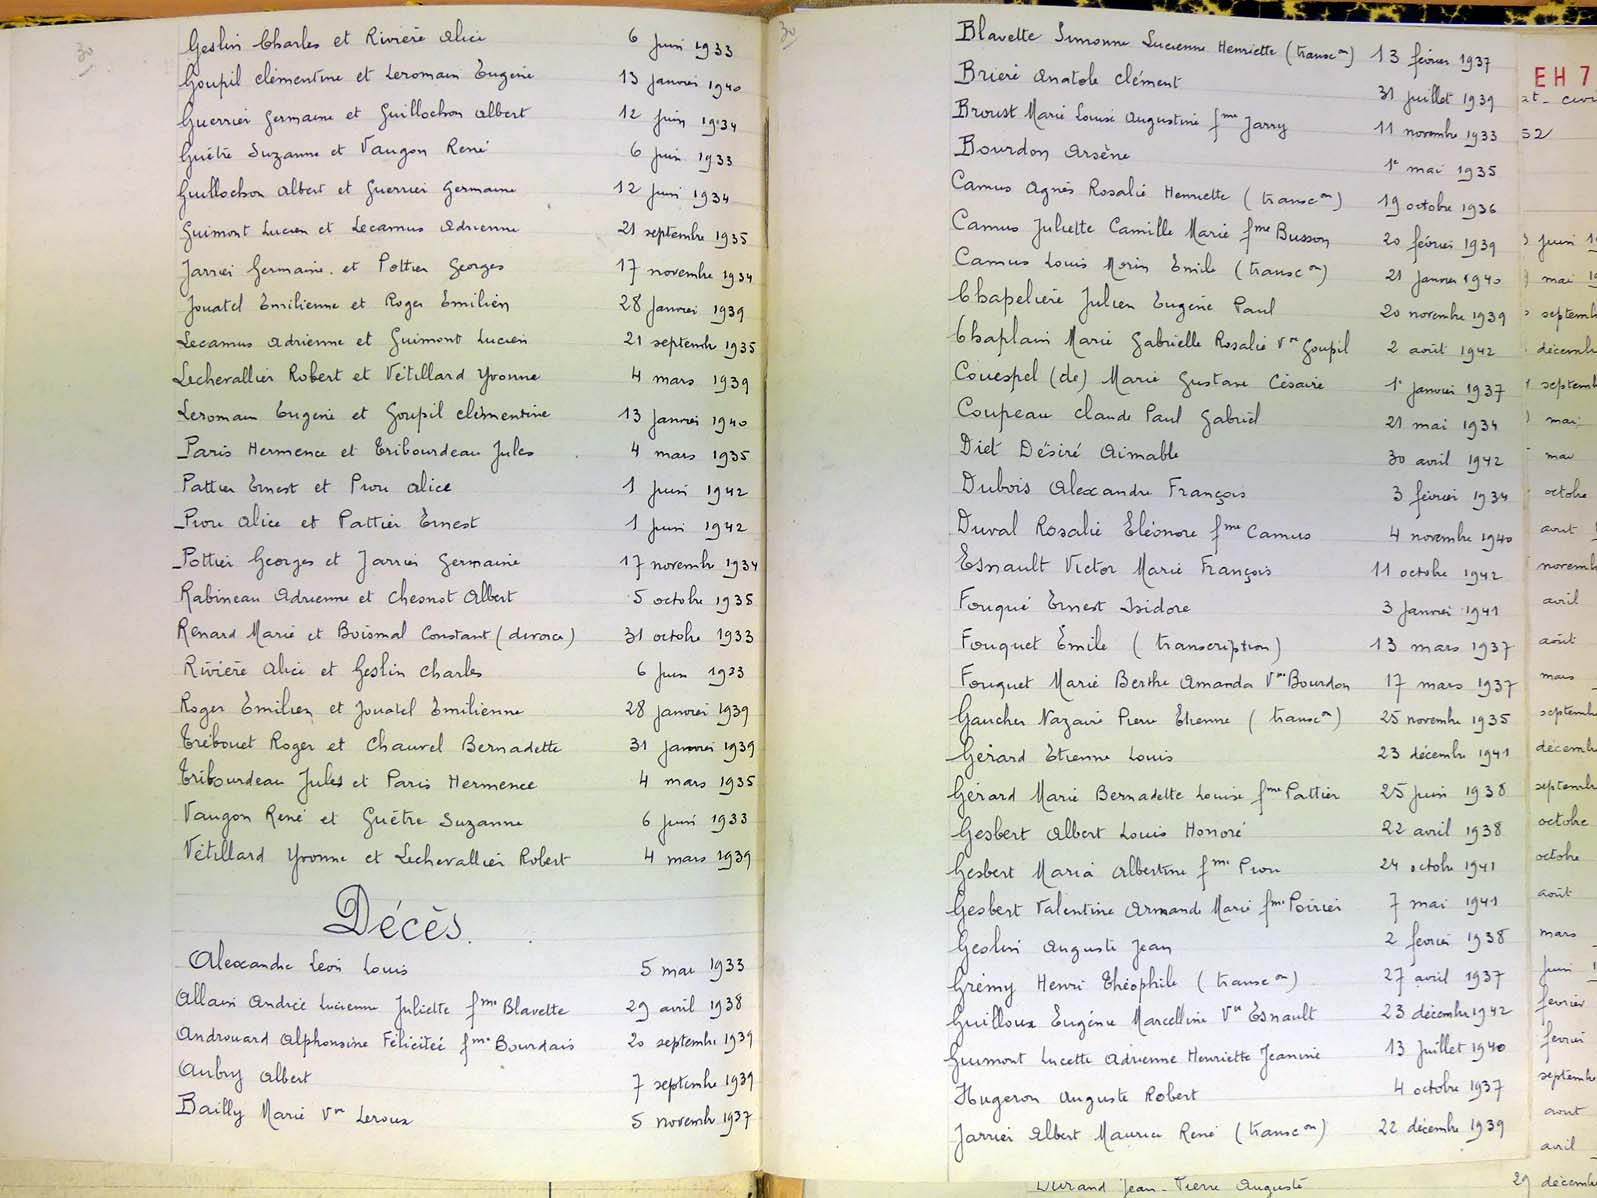 30
Geslin Charles et Rivière Alice 6 juin 1933
Goupil Clémentine et Leromain Eugène 13 janvier 1940
Guerrier Germaine et Guillochon Albert 12 juin 1934
Guêtre Suzanne et Vaugon René 6 juin 1933
Guillochon Albert et Guerrier Germaine 12 juin 1934
Guimont Lucien et Lecamus Adrienne 21 septembre 1935
Jarrier Germaine et Pottier Georges 17 novembre 1934
Jouatel Emilienne et Roger Emilien 28 janvier 1939
Lecamus Adrienne et Guimont Lucien 21 septembre 1935
Lechevallier Robert et Vétillard Yvonne 4 mars 1939
Leromain Eugène et Goupil Clémentine 13 janvier 1940
Paris Hermence et Tribourdeau Jules 4 mars 1935
Pattier Ernest et Piou Alice 1 juin 1942
Piou Alice et Pattier Ernest 1 juin 1942
Pottier Georges et Jarrier Germaine 17 novembre 1934
Rabineau Adrienne et Chesnot Albert 5 octobre 1935
Renard Marie et Boismal Constant (divorce) 31 octobre 1933
Rivière Alice et Geslin Charles 6 juin 1933
Roger Emilien et Jouatel Emilienne 28 janvier 1939
Trébouet Roger et Chauvel Bernadette 31 janvier 1939
Tribourdeau Jules et Paris Hermence 4 mars 1935
Vaugon René et Guêtre Suzanne 6 juin 1933
Vétillard Yvonne et Lechevallier Robert 4 mars 1939
Décès.
Alexandre Léon Louis 5 mai 1933
Allain Andrée Lucienne Juliette fme Blavette 29 avril 1938
Androuard Alphonsine Félicitée fme Bourdais 20 septembre 1939
Aubry Albert 7 septembre 1939
Bailly Marie Vve Leroux 5 novembre 1937
30
Blavette Simonne Lucienne Henriette (transcon) 13 février 1937
Brière Anatole Clément 31 juillet 1939
Broust Marie Louise Augustine fme Jarry 11 novembre 1933
Bourdon Arsène 1e mai 1935
Camus Agnès Rosalie Henriette (transcon) 19 octobre 1936
Camus Juliette Camille Marie fme Busson 20 février 1939
Camus Louis Morin Emile (transcon) 21 janvier 1940
Chapelière Julien Eugène Paul 20 novembre 1939
Chaplain Marie Gabrielle Rosalie Vve Goupil 2 août 1942
Couespel (de) Marie Gustave Césaire 1e janvier 1937
Coupeau Claude Paul Gabriel 21 mai 1934
Diet Désiré Aimable 30 avril 1942
Dubois Alexandre François 3 février 1934
Duval Rosalie Eléonore fme Camus 4 novembre 1940
Esnault Victor Marie François 11 octobre 1942
Fouqué Ernest Isidore 3 janvier 1941
Fouquet Emile (transcription) 13 mars 1937
Fouquet Marie Berthe Amanda Vve Bourdon 17 mars 1937
Gaucher Nazaire Pierre Etienne (transcon) 25 novembre 1935
Gérard Etienne Louis 23 décembre 1941
Gérard Marie Bernadette Louise fme Pattier 25 juin 1938
Gesbert Albert Louis Honoré 22 avril 1938
Gesbert Maria Albertine fme Piou 24 octobre 1941
Gesbert Valentine Armande Marie fme Poirier 7 mai 1941
Geslin Auguste Jean 2 février 1938
Grémy Henri Théophile (transcon) 27 avril 1937
Guilloux Eugénie Marcelline Vve Esnault 23 décembre 1942
Guimont Lucette Adrienne Henriette Jeanine 13 juillet 1940
Hugeron Auguste Robert 4 octobre 1937
Jarrier Albert Maurice René (transcon) 22 décembre 1939
EH 7
52
juin
mai
septemb
décemb
septemb
mai
mai
octobre
août
novemb
avril
août
mars
septemb
décemb
septemb
octobre
octobre
août
mars
juin
février
février
septembre
août
avril
Durand Jean-Pierre Auguste 29 décemb